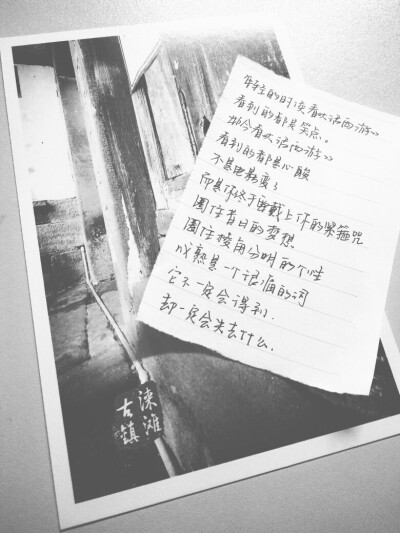 年轻的时候看《大话西游》
看到的都是笑点.
如今看《大话西游》
看到的都是心酸
不是电影变了
而是你终于要戴上你的紧箍咒
圈住昔日的梦想
圈住棱角分明的个性
成熟是一个很痛的词
它不一定会得到.
却一定会失去什么.
涞滩
古镇